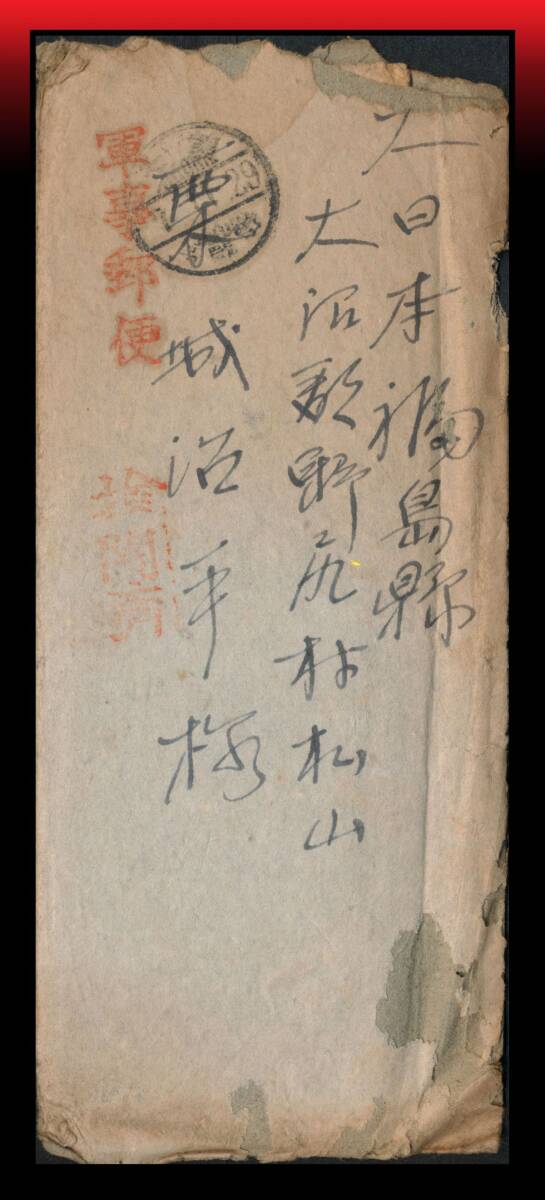 大日本福島縣
大沼郡野尻村松山
栗城治平様
軍事郵便
検閲済